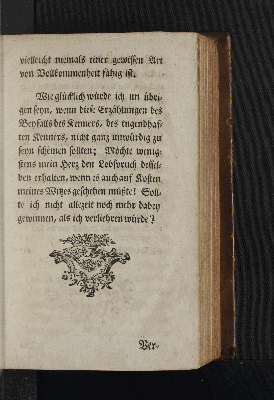 vielleicht niemals einer gewissen Art
von Vollkommenheit fähig ist.
Wie glücklich würde ich im übri-
gen seyn, wenn diese Erzählungen des
Beyfalls des Kenners, des tugendhaf-
ten Kenners, nicht ganz unwürdig zu
seyn scheinen sollten; Möchte wenig-
stens mein Herz den Lobspruch dessel-
ben erhalten, wenn es auch auf Kosten
meines Witzes geschehen müßte! Soll-
te ich nicht allezeit noch mehr dabey
gewinnen, als ich verliehren würde?
Ver-